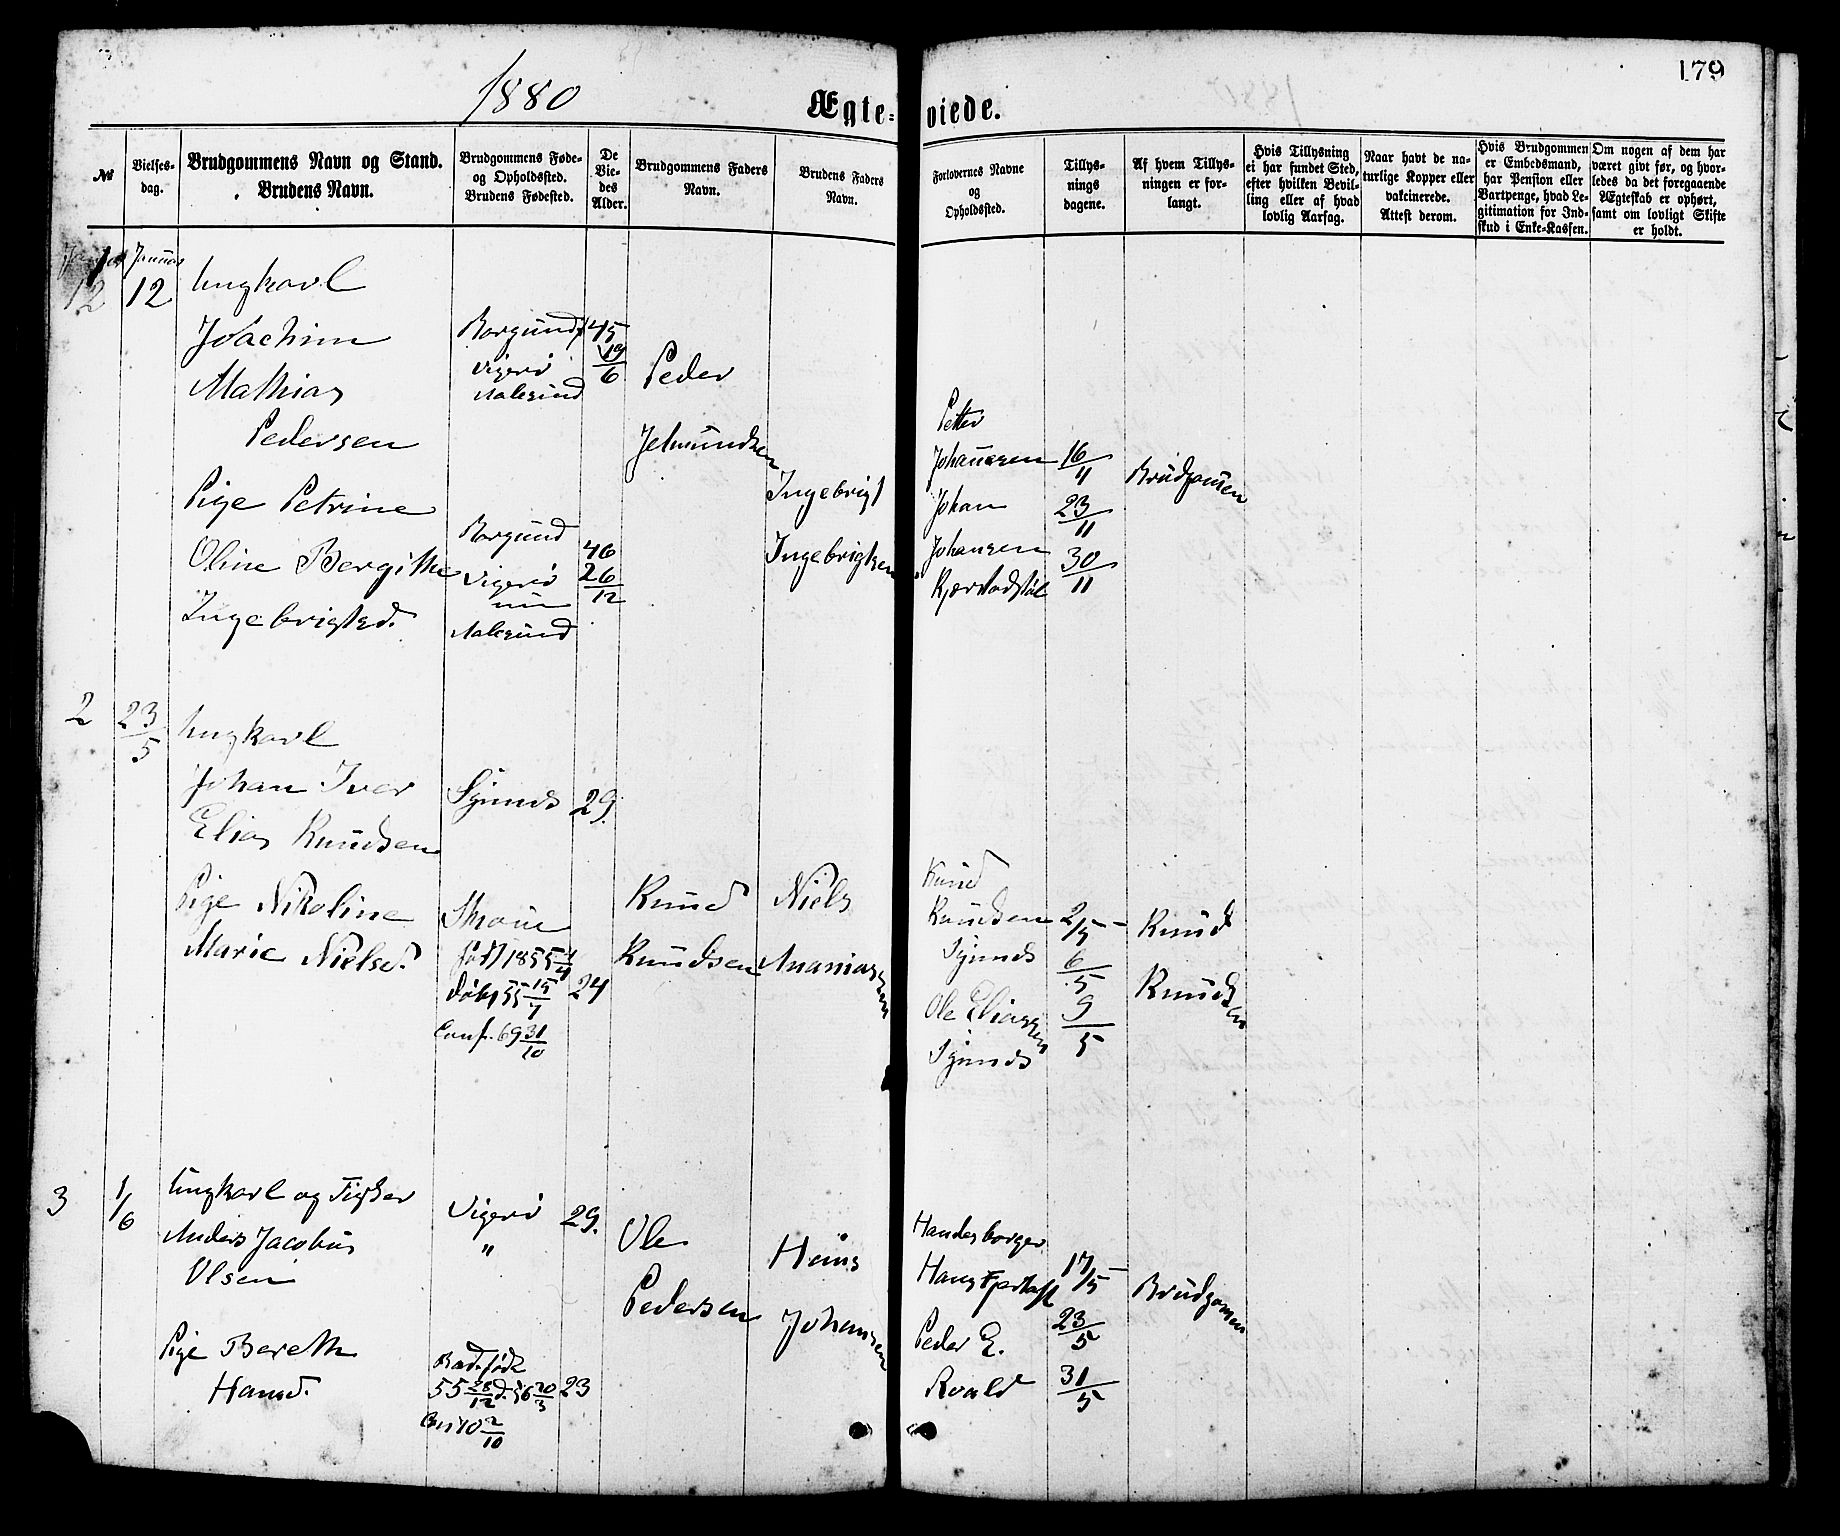 1880
179
Ægte-viede.
№
Vielses-
dag.
Brudgommens Navn og Stand.
Brudens Navn.
Brudgommens Føde-
og Opholdssted.
Brudens Fødested.
De
Vie-
des
Alder.
Brudgommens Faders
Navn.
Brudens Faders
Navn.
Forlovernes Navne
og
Opholdssted.
Tillys-
nings
dagene.
Af hvem Tillys-
ningen er for-
langt.
Hvis Tillysning
ei har fundet Sted,
efter hvilken Bevil-
ling eller af hvad
lovlig Aarsag.
Naar havt de na-
turlige Kopper eller
vakcinerede.
Attest derom.
Hvis Brudgommen
er Embedsmand,
har Pension eller
Vartpenge, hvad Le-
gitimation for Ind-
skud i Enke-Kassen.
Om nogen af dem har
været givt før, og hvor-
ledes da det foregaaende
Ægteskab er ophørt,
samt om lovligt Skifte
er holdt.
1
12
Januar
12
Ungkarl
Joachim
Mathias
Pedersen
Pige Petrine
Oline Bergithe
Ingebrigtsd.
Borgund
Vigerø
Aalesund
Borgund
Vigerø
nu
Aalesund
45
19/6
46
26/12
Peder
Jetmundsen
Ingebrigt
Ingebrigtsen
Petter
Johannesen
Johan
Johansen
16/11
23/11
30/11
Brudgomen
2
23/5
Ungkarl
Johan Iver
Elias Knudsen
Pige Nikoline
Marie Nielsd.
Synnes
født 1855
døbt 55 15/7
Conf. 69 31/10
29.
24
Knud
Knudsen
Niels
Ananiassen
Knud
Knudsen
Synnes
Ole Eliassen
Synnes
2/5
6/5
9/5
Knud
Knudsen
3
1/6
Ungkarl og Fisker
Anders Jacobus
Olsen
Pige Bereth
Hansd.
Vigerø
"
Bud. føde
55 28/12 d. 56 20/3
2/10
29.
23
Ole
Pedersen
Hans
Johansen
Handelsborger
Hans
Peder E.
Roald
17/5
23/5
31/5
Brudgomen